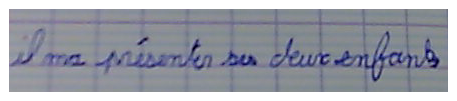 il ma présenter ses deux enfants